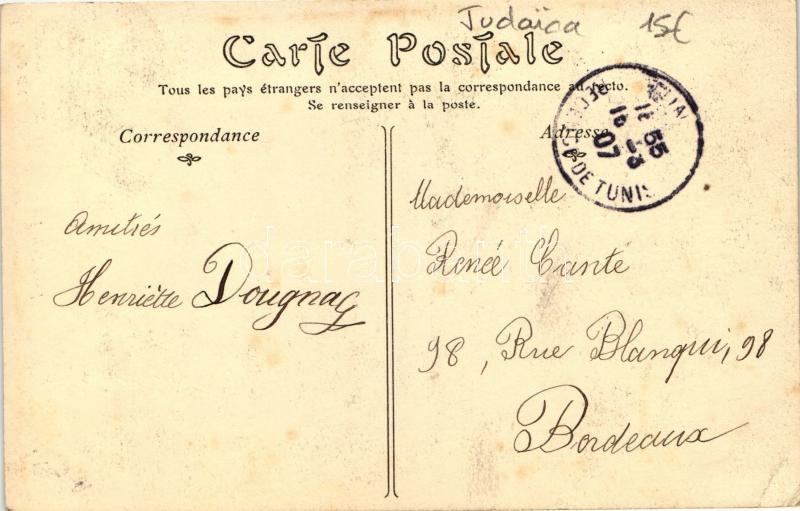 Judaïca 15€
Carte Postale
Tous les pays étrangers n'acceptent pas la correspondance au recto.
Se renseigner à la poste.
Correspondance
Adresse
18 55
16 -3
07
DE TUNIS
Amitiés
Henriette Dougnac
Mademoiselle
Renée Cante
98, Rue Blanqui, 98
Bordeaux
darabanth